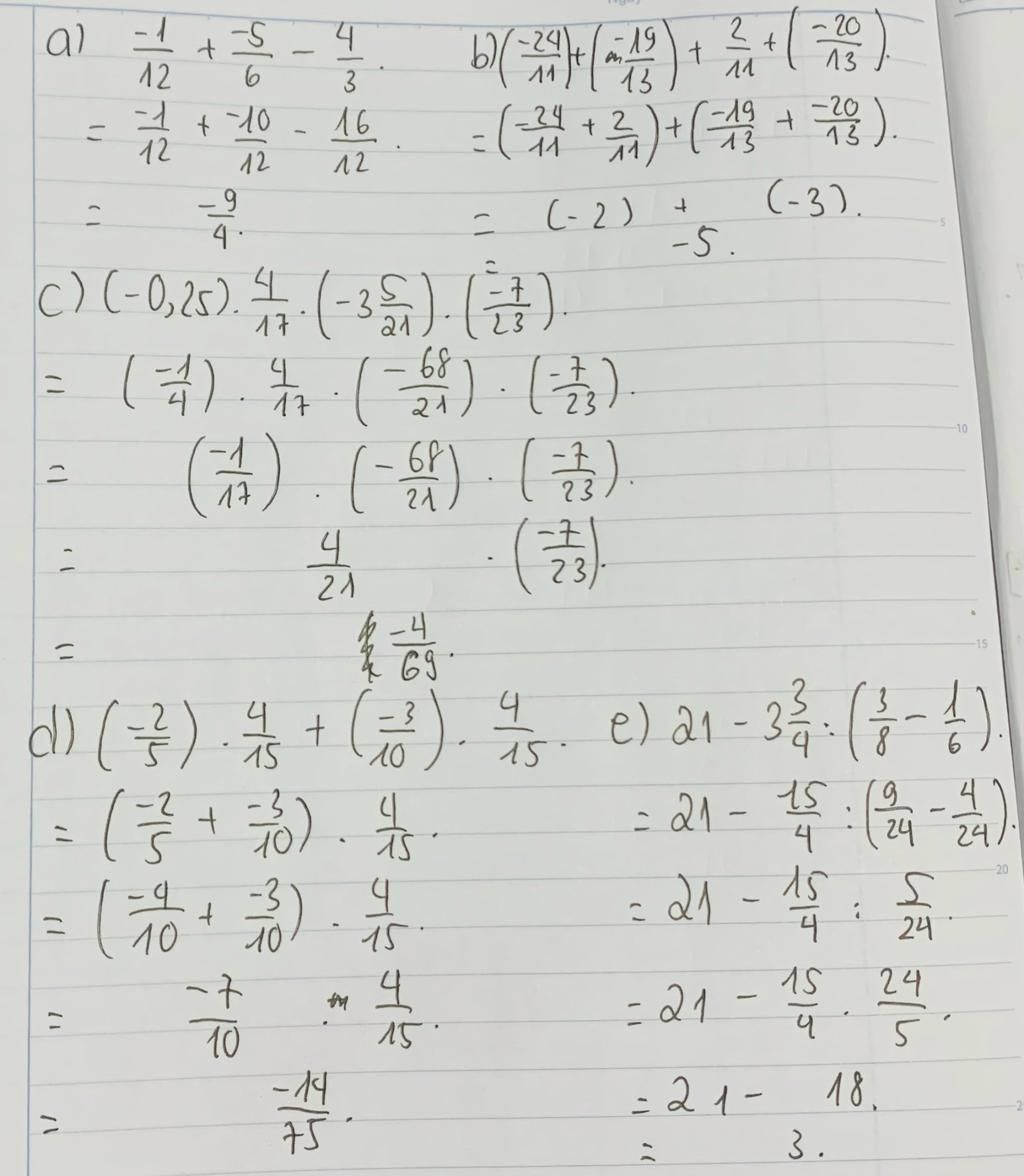 a) -1/12 + -5/6 - 4/3.
= -1/12 + -10/12 - 16/12.
= -9/4.
b) (-24/11) + (-19/13) + 2/11 + (-20/13).
= (-24/11 + 2/11) + (-19/13 + -20/13).
= (-2) + (-3).
= -5.
c) (-0,25). 4/17 . (-3 5/21) . (-7/23).
= (-1/4) . 4/17 . (-68/21) . (-7/23).
= (-1/17) . (-68/21) . (-7/23).
= 4/21 . (-7/23).
= -4/69.
d) (-2/5) . 4/15 + (-3/10) . 4/15.
= (-2/5 + -3/10) . 4/15.
= (-4/10 + -3/10) . 4/15.
= -7/10 . 4/15.
= -14/75.
e) 21 - 3 3/4 : (3/8 - 1/6).
= 21 - 15/4 : (9/24 - 4/24).
= 21 - 15/4 : 5/24.
= 21 - 15/4 . 24/5.
= 21 - 18.
= 3.